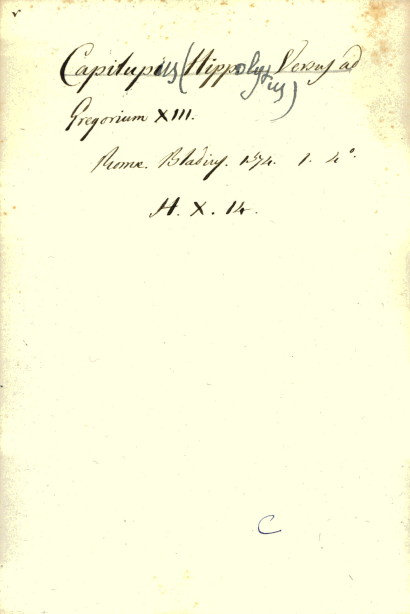 Capilupius (Hippolytus) Versus ad
Gregorium XIII.
Romæ. Bladius. 1574. 1. 4°.
H. X. 14.
C